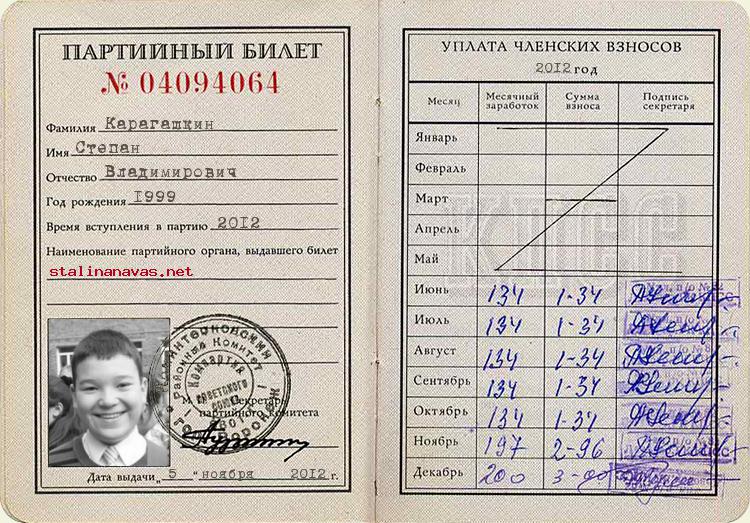 ПАРТИЙНЫЙ БИЛЕТ
№ 04094064
Фамилия Карагашкин
Имя Степан
Отчество Владимирович
Год рождения 1999
Время вступления в партию 2012
Наименование партийного органа, выдавшего билет
stalinanavas.net
Районный Комитет
Компартия
Советского
Союза
М Секретарь
партийного комитета
Дата выдачи „5“ ноября 2012 г.
УПЛАТА ЧЛЕНСКИХ ВЗНОСОВ
2012 год
Месяц Месячный заработок Сумма взноса Подпись секретаря
КПСС
Январь
Февраль
Март
Апрель
Май
Июнь 134 1-34
Июль 134 1-34
Август 134 1-34
Сентябрь 134 1-34
Октябрь 134 1-34
Ноябрь 197 2-96
Декабрь 200